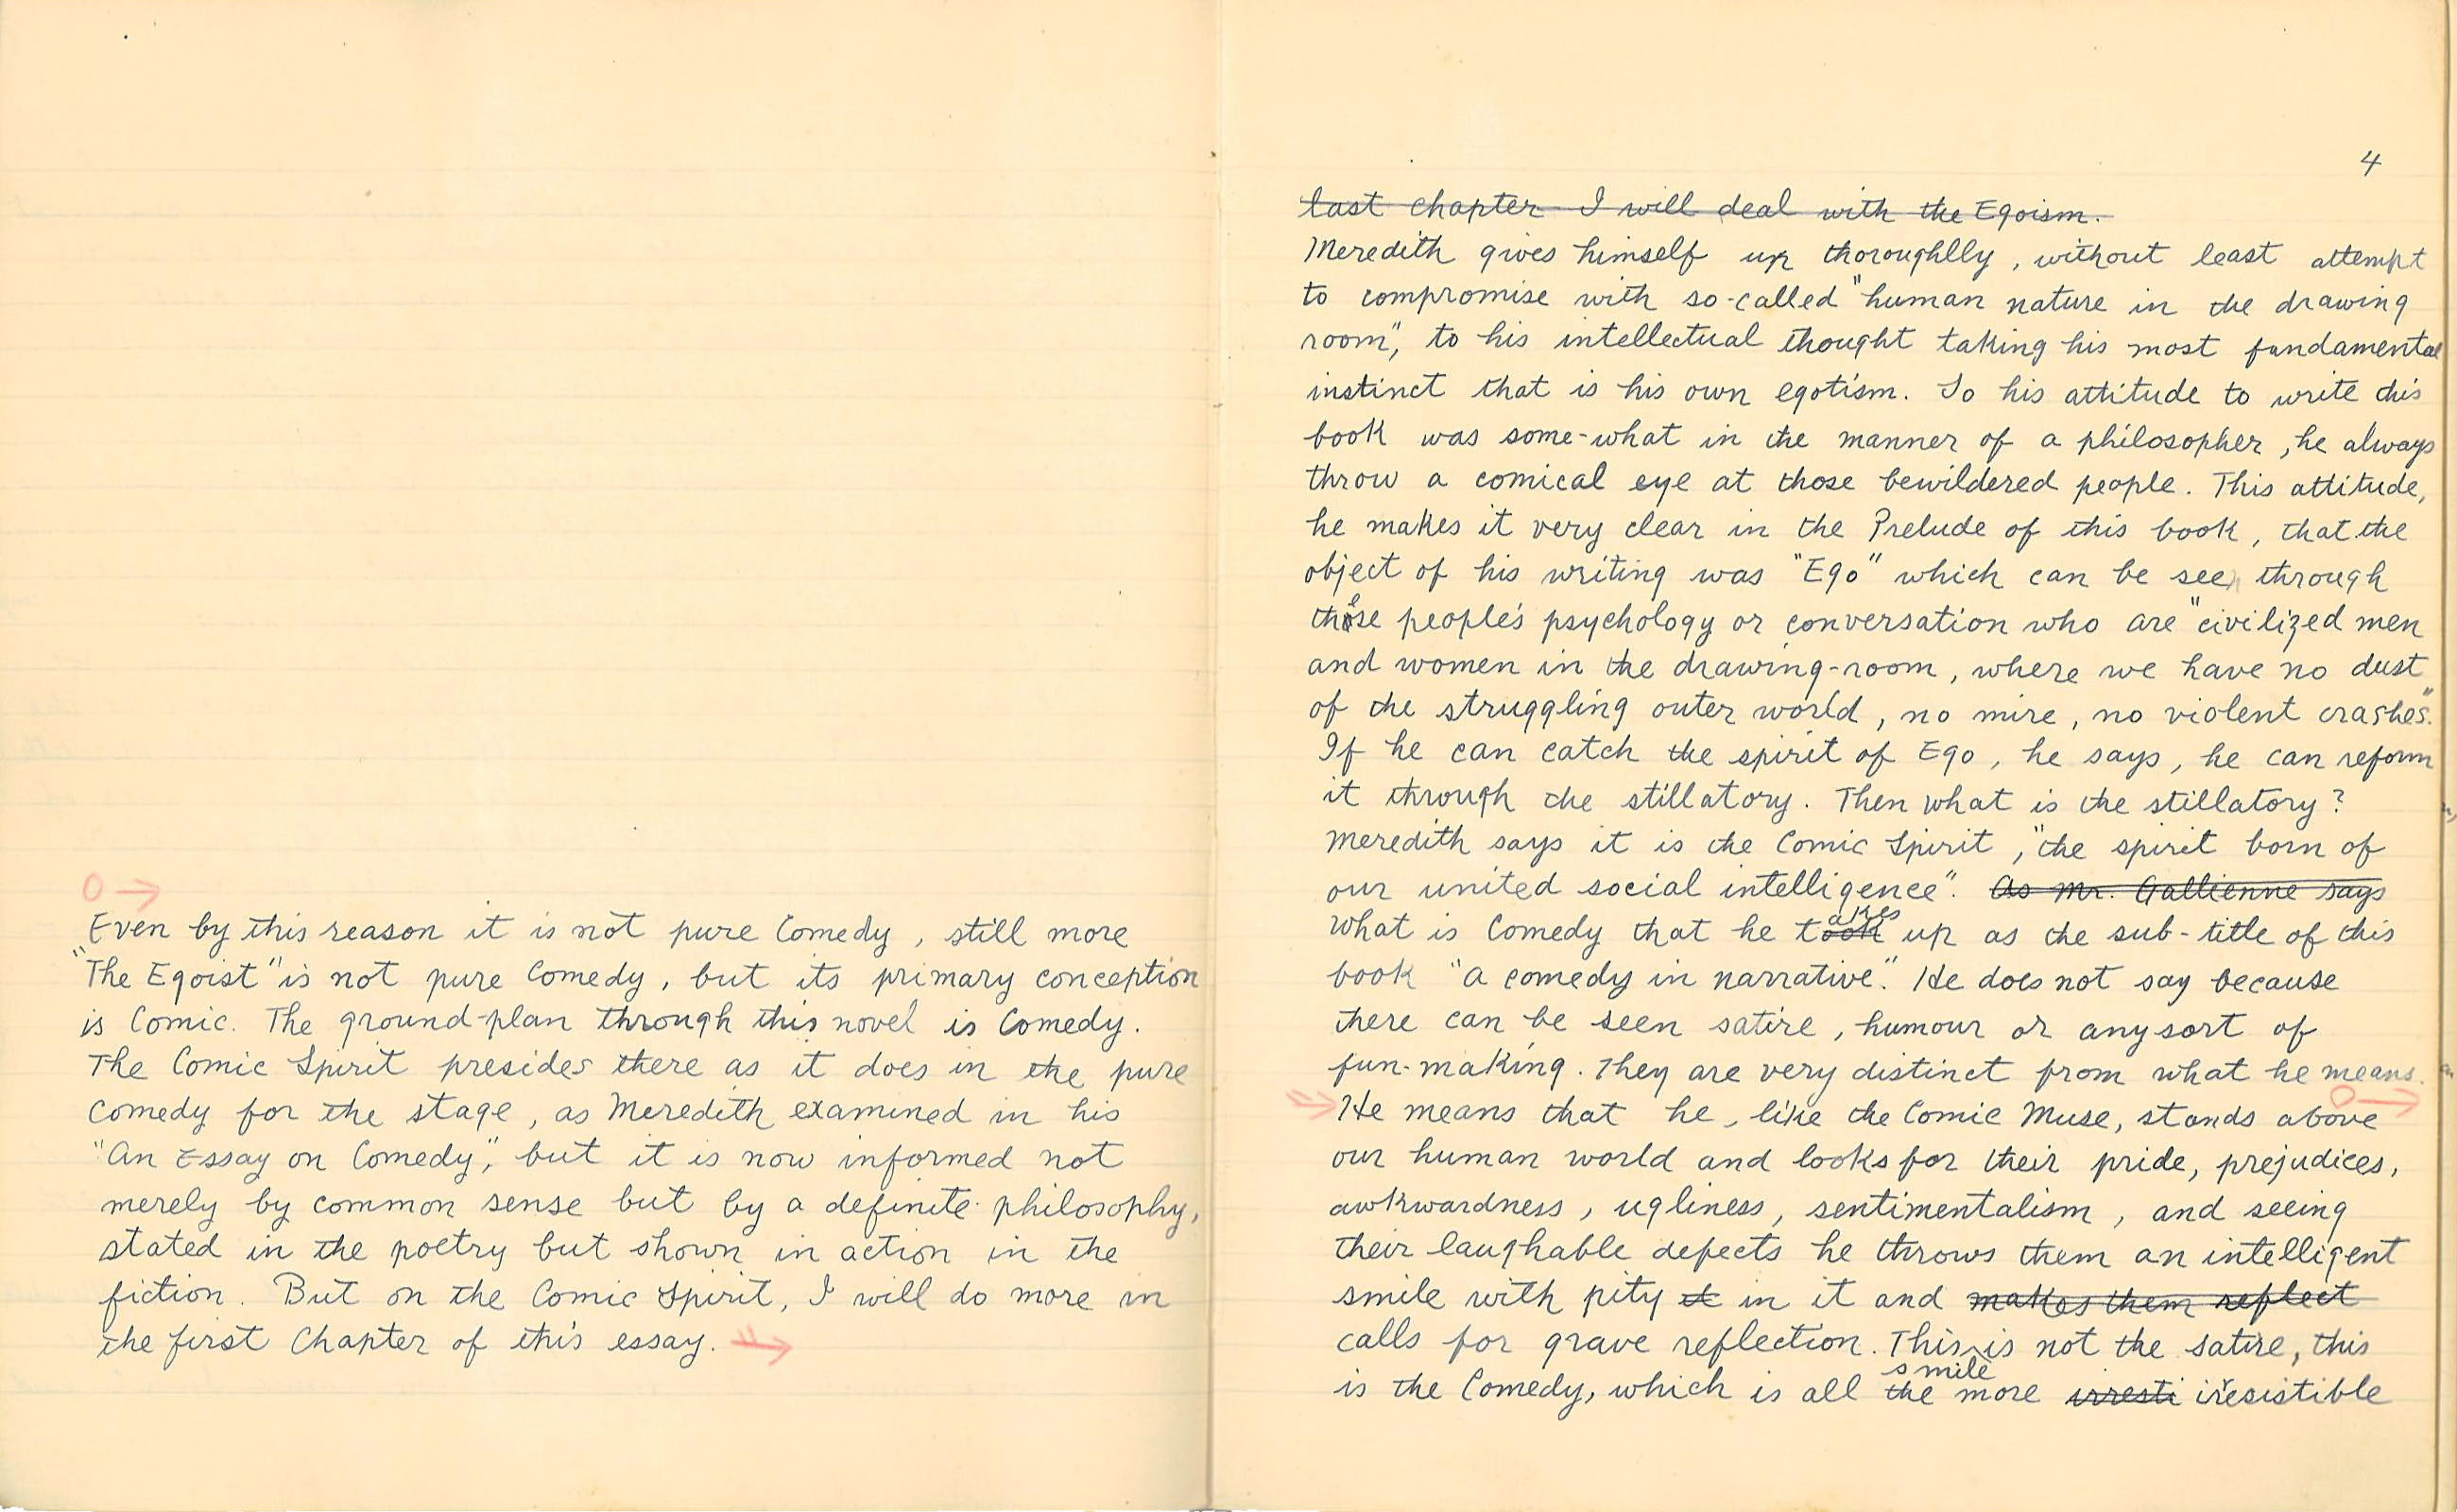 Even by this reason it is not pure Comedy, still more
"The Egoist" is not pure Comedy, but its primary conception
is Comic. The ground-plan through this novel is Comedy.
The Comic Spirit presides there as it does in the pure
comedy for the stage, as Meredith examined in his
"An Essay on Comedy", but it is now informed not
merely by common sense but by a definite philosophy,
stated in the poetry but shown in action in the
fiction. But on the Comic Spirit, I will do more in
the first Chapter of this essay.
4
last chapter I will deal with the Egoism.
Meredith gives himself up thoroughlly, without least attempt
to compromise with so-called "human nature in the drawing
room", to his intellectual thought taking his most fundamental
instinct that is his own egotism. So his attitude to write this
book was some-what in the manner of a philosopher, he always
throw a comical eye at those bewildered people. This attitude,
he makes it very clear in the Prelude of this book, that the
object of his writing was "Ego" which can be seen through
these people's psychology or conversation who are "civilized men
and women in the drawing-room, where we have no dust
of the struggling outer world, no mire, no violent crashes."
If he can catch the spirit of Ego, he says, he can reform
it through the stillatory. Then what is the stillatory?
Meredith says it is the Comic Spirit, "the spirit born of
our united social intelligence". As Mr. Gallienne says
What is Comedy that he took akes up as the sub-title of this
book "a comedy in narrative." He does not say because
there can be seen satire, humour or any sort of
fun-making. They are very distinct from what he means.
He means that he, like the Comic Muse, stands above
our human world and looks for their pride, prejudices,
awkwardness, ugliness, sentimentalism, and seeing
their laughable defects he throws them an intelligent
smile with pity it in it and makes them reflect
calls for grave reflection. This smile is not the satire, this
is the Comedy, which is all the more irresti irresistible